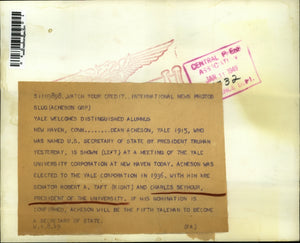 CENTRAL PRESS
ASSOCIATION
JAN 11 1949
WATCH YOUR CREDIT...INTERNATIONAL NEWS PHOTOS
SLUG (ACHESON GBP)
YALE WELCOMES DISTINGUISHED ALUMNUS
NEW HAVEN, CONN......DEAN ACHESON, YALE 1915, WHO
WAS NAMED U.S. SECRETARY OF STATE BY PRESIDENT TRUMAN
YESTERDAY, IS SHOWN (LEFT) AT A MEETING OF THE YALE
UNIVERSITY CORPORATION AT NEW HAVEN TODAY. ACHESON WAS
ELECTED TO THE YALE CORPORATION IN 1936. WITH HIM ARE
SENATOR ROBERT A. TAFT (RIGHT) AND CHARLES SEYMOUR,
PRESIDENT OF THE UNIVERSITY. IF HIS NOMINATION IS
CONFIRMED, ACHESON WILL BE THE FIFTH YALEMAN TO BECOME
A SECRETARY OF STATE.
(PA)